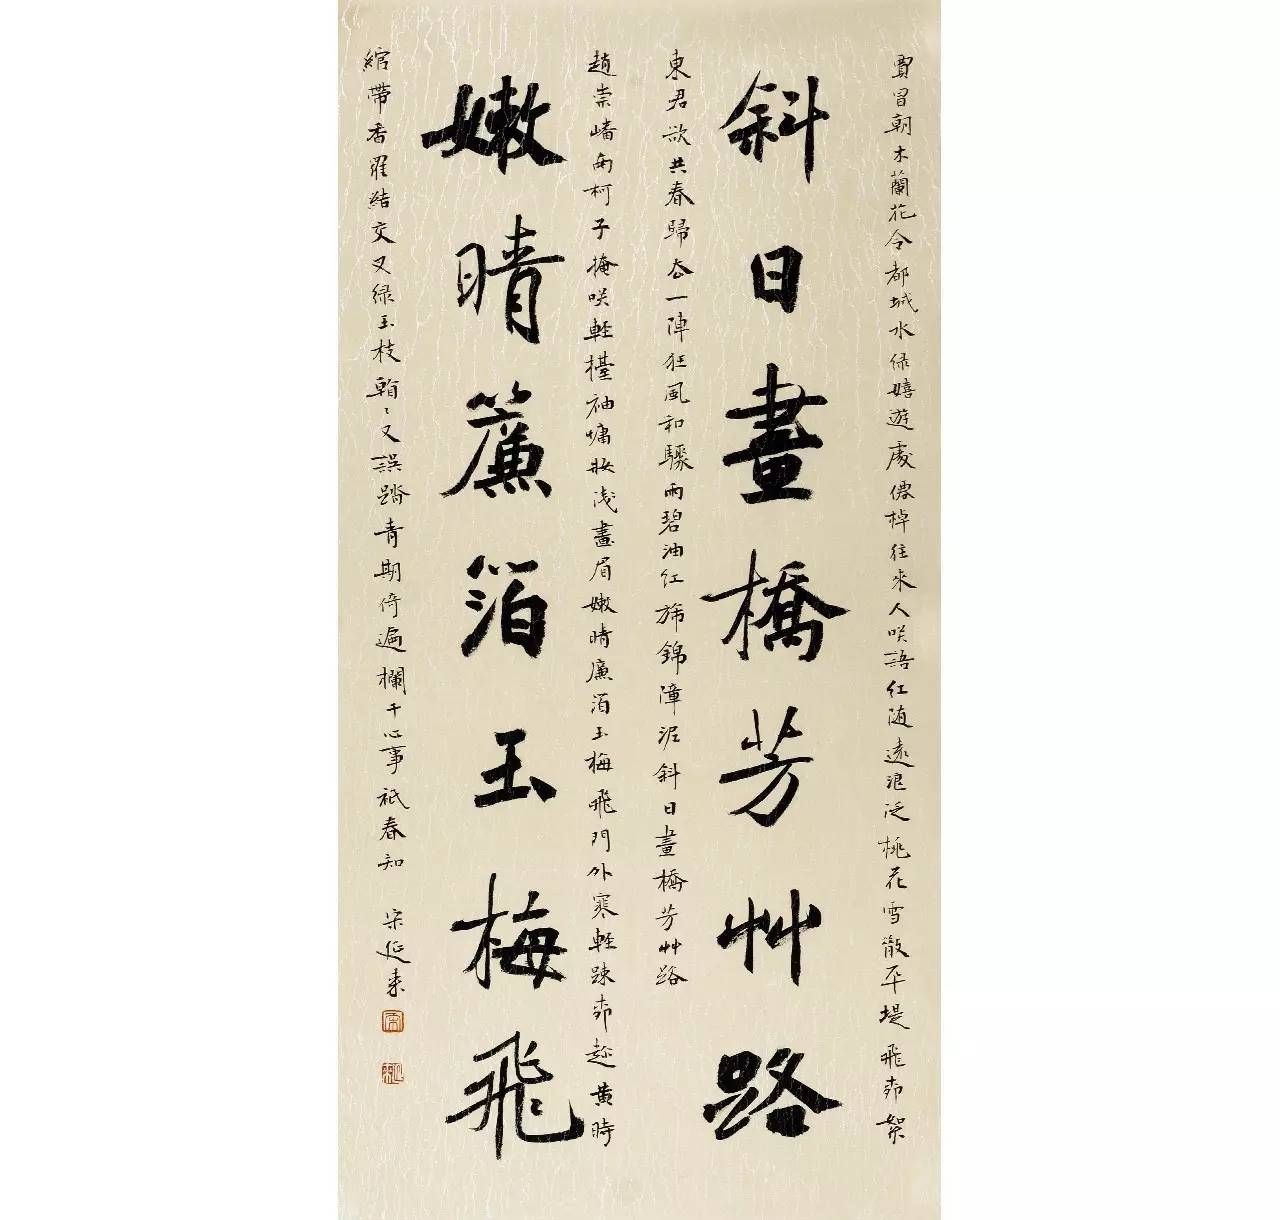 賈昌朝木蘭花令都城水绿嬉遊處僊棹往來人咲語红随遠浪泛桃花雪散平堤飛柳絮
斜日畫橋芳艸路
東君欲共春歸去一陣狂風和驟雨碧油红旆錦漳泥斜日畫橋芳艸路
趙崇嶓南柯子掩咲輕擡袖慵妝浅畫眉嫩晴廉箔玉梅飛門外寒輕踈柳趂黄時
嫩晴簾箔玉梅飛
綰帶香羅結交叉绿玉枝翰〻又誤踏青期倚遍欄干心事衹春知 宋延来